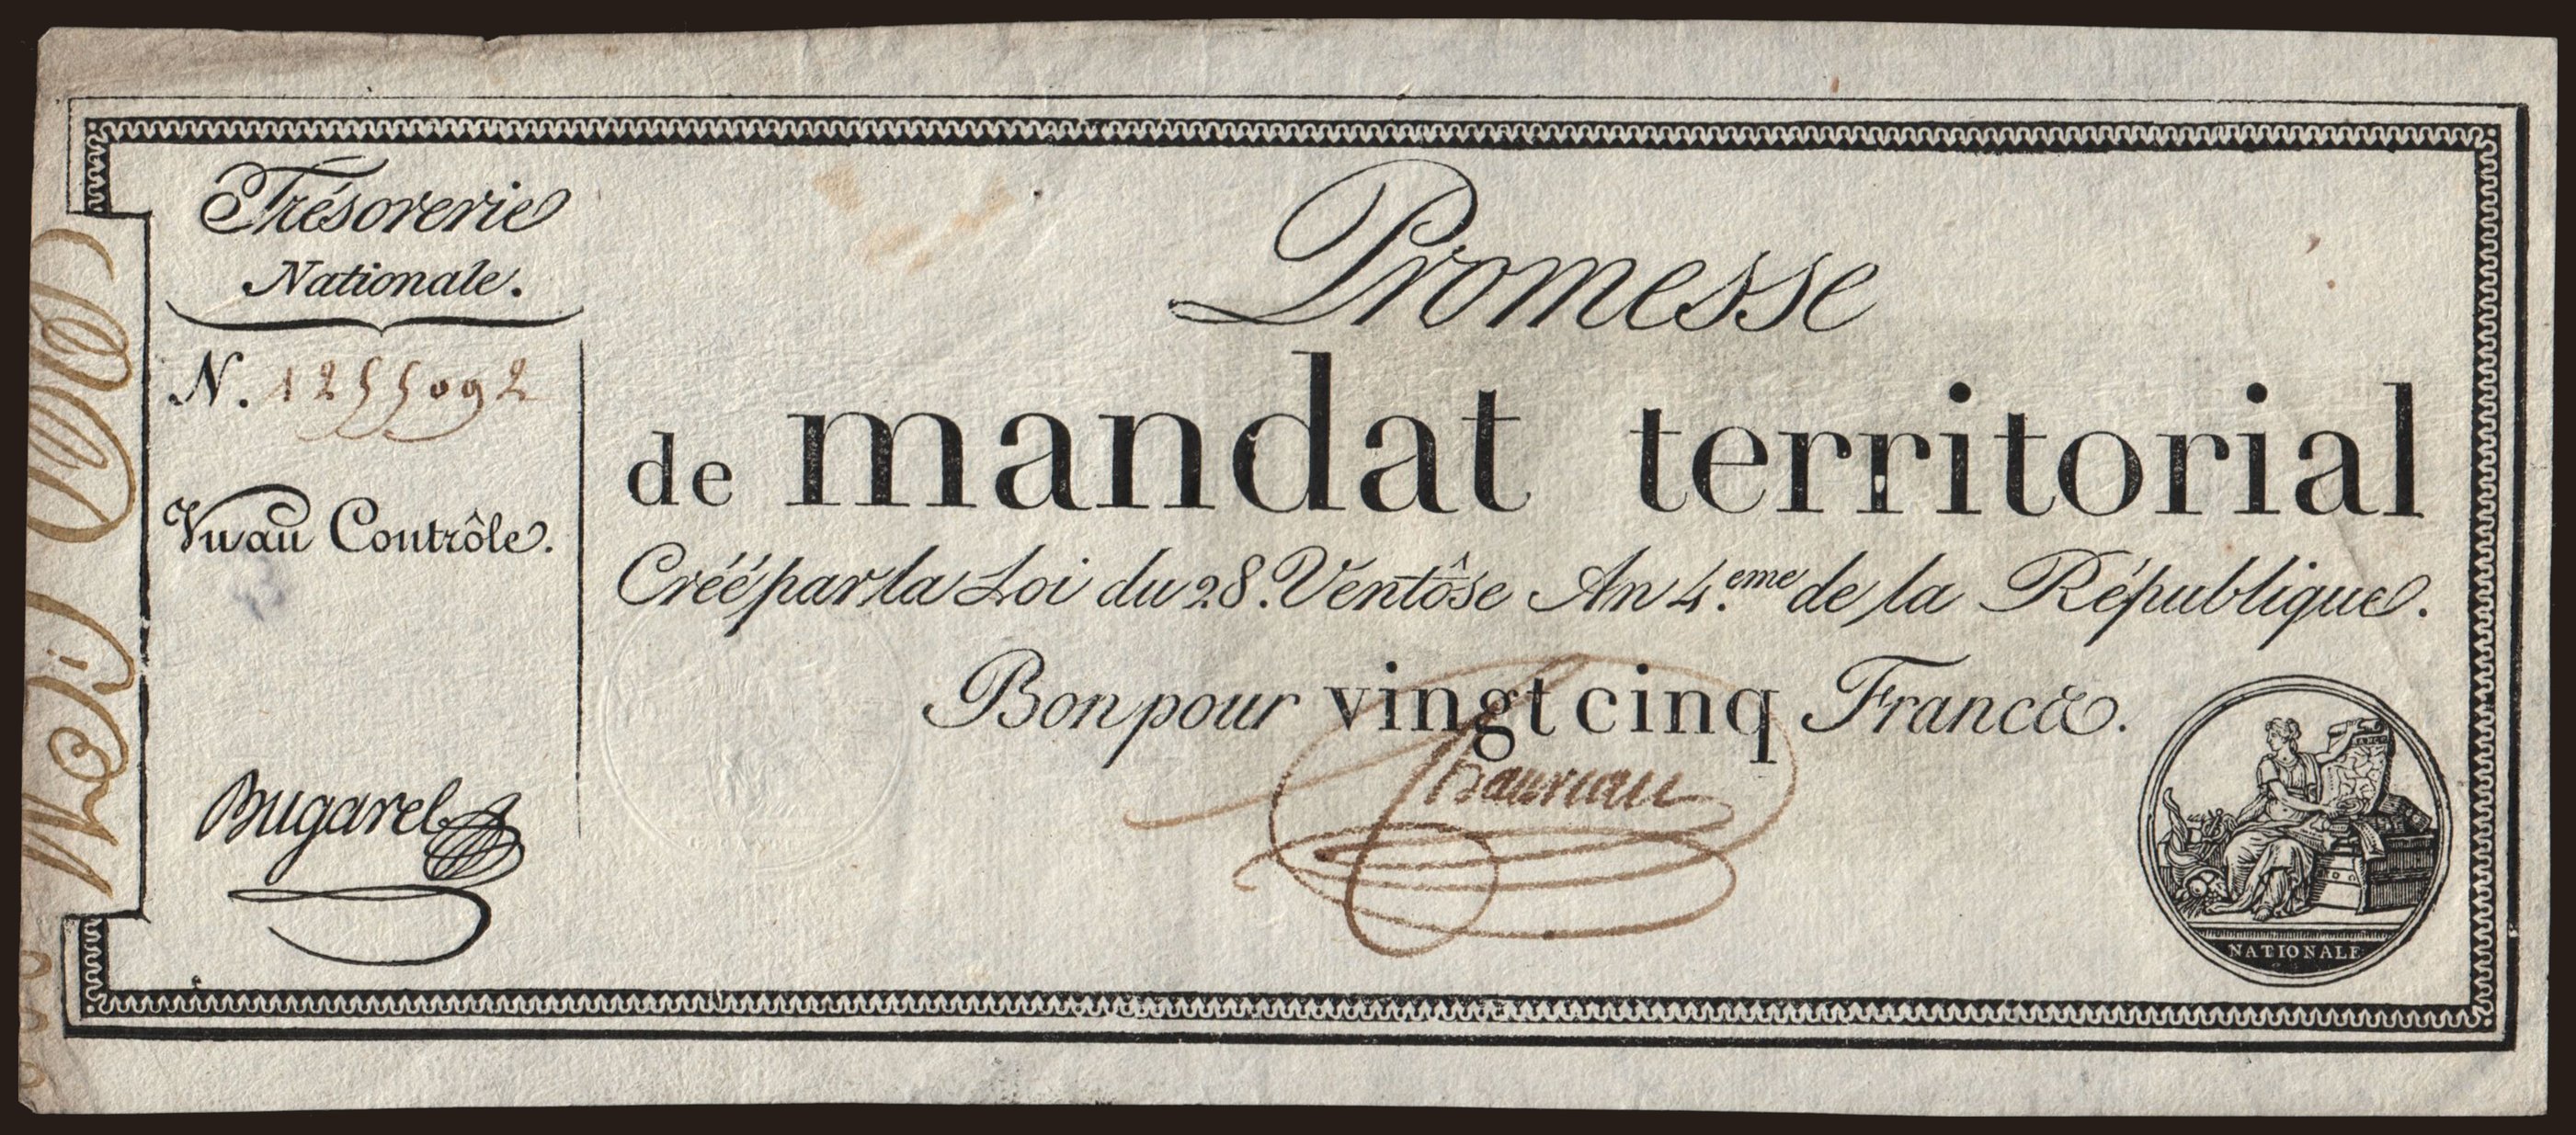 Trésorerie
Nationale.
N. 1255092
Vu au Contrôle.
Bugarel
Promesse
de mandat territorial
Créé par la Loi du 28. Ventôse An 4.eme de la République.
Bon pour vingt cinq Francs.
NATIONALE